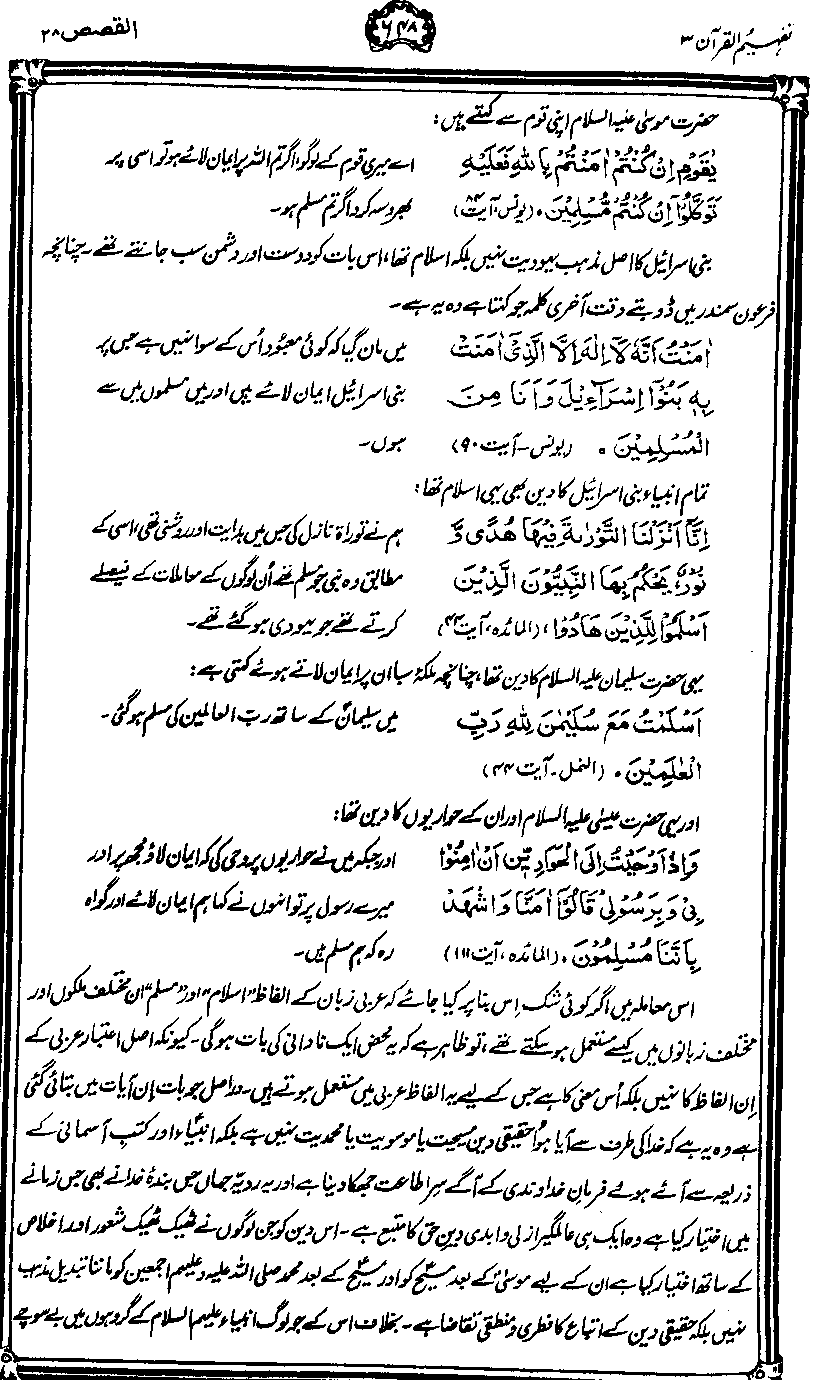 تفہیم القرآن ۳
۶۴۸
القصص ۲۸
حضرت موسیٰ علیہ السلام اپنی قوم سے کہتے ہیں:
یٰقَوْمِ اِنْ کُنْتُمْ اٰمَنْتُمْ بِاللّٰہِ فَعَلَیْہِ اے میری قوم کے لوگو، اگر تم اللہ پر ایمان لائے ہو تو اسی پر
تَوَکَّلُوْٓا اِنْ کُنْتُمْ مُّسْلِمِیْنَ۔ (یونس، آیت ۸۴) بھروسہ کرو اگر تم مسلم ہو۔
بنی اسرائیل کا اصل مذہب یہودیت نہیں بلکہ اسلام تھا، اس بات کو دوست اور دشمن سب جانتے تھے۔ چنانچہ
فرعون سمندر میں ڈوبتے وقت آخری کلمہ جو کہتا ہے وہ یہ ہے۔
اٰمَنْتُ اَنَّہٗ لَآ اِلٰہَ اِلَّا الَّذِیْٓ اٰمَنَتْ میں مان گیا کہ کوئی معبود اُس کے سوا نہیں ہے جس پر
بِہٖ بَنُوْٓا اِسْرَآءِیْلَ وَاَنَا مِنَ بنی اسرائیل ایمان لائے ہیں اور میں مسلموں میں سے
الْمُسْلِمِیْنَ۔ (یونس۔ آیت ۹۰) ہوں۔
تمام انبیاء بنی اسرائیل کا دین بھی یہی اسلام تھا:
اِنَّآ اَنْزَلْنَا التَّوْرٰىۃَ فِیْہَا ہُدًی وَّ ہم نے توراۃ نازل کی جس میں ہدایت اور روشنی تھی، اسی کے
نُوْرٌ، یَحْکُمُ بِہَا النَّبِیُّوْنَ الَّذِیْنَ مطابق وہ نبی جو مسلم تھے اُن لوگوں کے معاملات کے فیصلے
اَسْلَمُوْا لِلَّذِیْنَ ہَادُوْا، (المائدہ، آیت ۴۴) کرتے تھے جو یہودی ہو گئے تھے۔
یہی حضرت سلیمان علیہ السلام کا دین تھا، چنانچہ ملکۂ سبا ان پر ایمان لاتے ہوئے کہتی ہے:
اَسْلَمْتُ مَعَ سُلَیْمٰنَ لِلّٰہِ رَبِّ میں سلیمانؑ کے ساتھ رب العالمین کی مسلم ہوگئی۔
الْعٰلَمِیْنَ۔ (النمل۔ آیت ۴۴)
اور یہی حضرت عیسیٰ علیہ السلام اور ان کے حواریوں کا دین تھا:
وَاِذْ اَوْحَیْتُ اِلَی الْحَوَارِیّٖنَ اَنْ اٰمِنُوْا اور جبکہ میں نے حواریوں پر وحی کی کہ ایمان لاؤ مجھ پر اور
بِیْ وَبِرَسُوْلِیْ قَالُوْٓا اٰمَنَّا وَاشْہَدْ میرے رسول پر تو انہوں نے کہا ہم ایمان لائے اور گواہ
بِاَنَّنَا مُسْلِمُوْنَ۔ (المائدہ، آیت ۱۱۱) رہ کہ ہم مسلم ہیں۔
اس معاملہ میں اگر کوئی شک اِس بنا پر کیا جائے کہ عربی زبان کے الفاظ ”اسلام“ اور ”مسلم“ ان مختلف ملکوں اور
مختلف زبانوں میں کیسے مستعمل ہو سکتے تھے، تو ظاہر ہے کہ یہ محض ایک نادانی کی بات ہوگی۔ کیونکہ اصل اعتبار عربی کے
اِن الفاظ کا نہیں بلکہ اُس معنی کا ہے جس کے لیے یہ الفاظ عربی میں مستعمل ہوتے ہیں۔ دراصل جو بات اِن آیات میں بتائی گئی
ہے وہ یہ ہے کہ خدا کی طرف سے آیا ہوا حقیقی دین مسیحیت یا موسویت یا محمدیت نہیں ہے بلکہ انبیاءؑ اور کتبِ آسمانی کے
ذریعہ سے آئے ہوئے فرمانِ خداوندی کے آگے سرِ اطاعت جھکا دینا ہے اور یہ رویّہ جہاں جس بندۂ خدا نے بھی جس زمانے
میں اختیار کیا ہے وہ ایک ہی عالمگیر ازلی و ابدی دینِ حق کا متبع ہے۔ اس دین کو جن لوگوں نے ٹھیک ٹھیک شعور اور اخلاص
کے ساتھ اختیار کیا ہے ان کے لیے موسیٰؑ کے بعد مسیحؑ کو اور مسیحؑ کے بعد محمد صلی اللہ علیہ وعلیہم اجمعین کو ماننا تبدیلِ مذہب
نہیں بلکہ حقیقی دین کے اتباع کا فطری و منطقی تقاضا ہے۔ بخلاف اس کے جو لوگ انبیاء علیہم السلام کے گروہوں میں بے سوچے